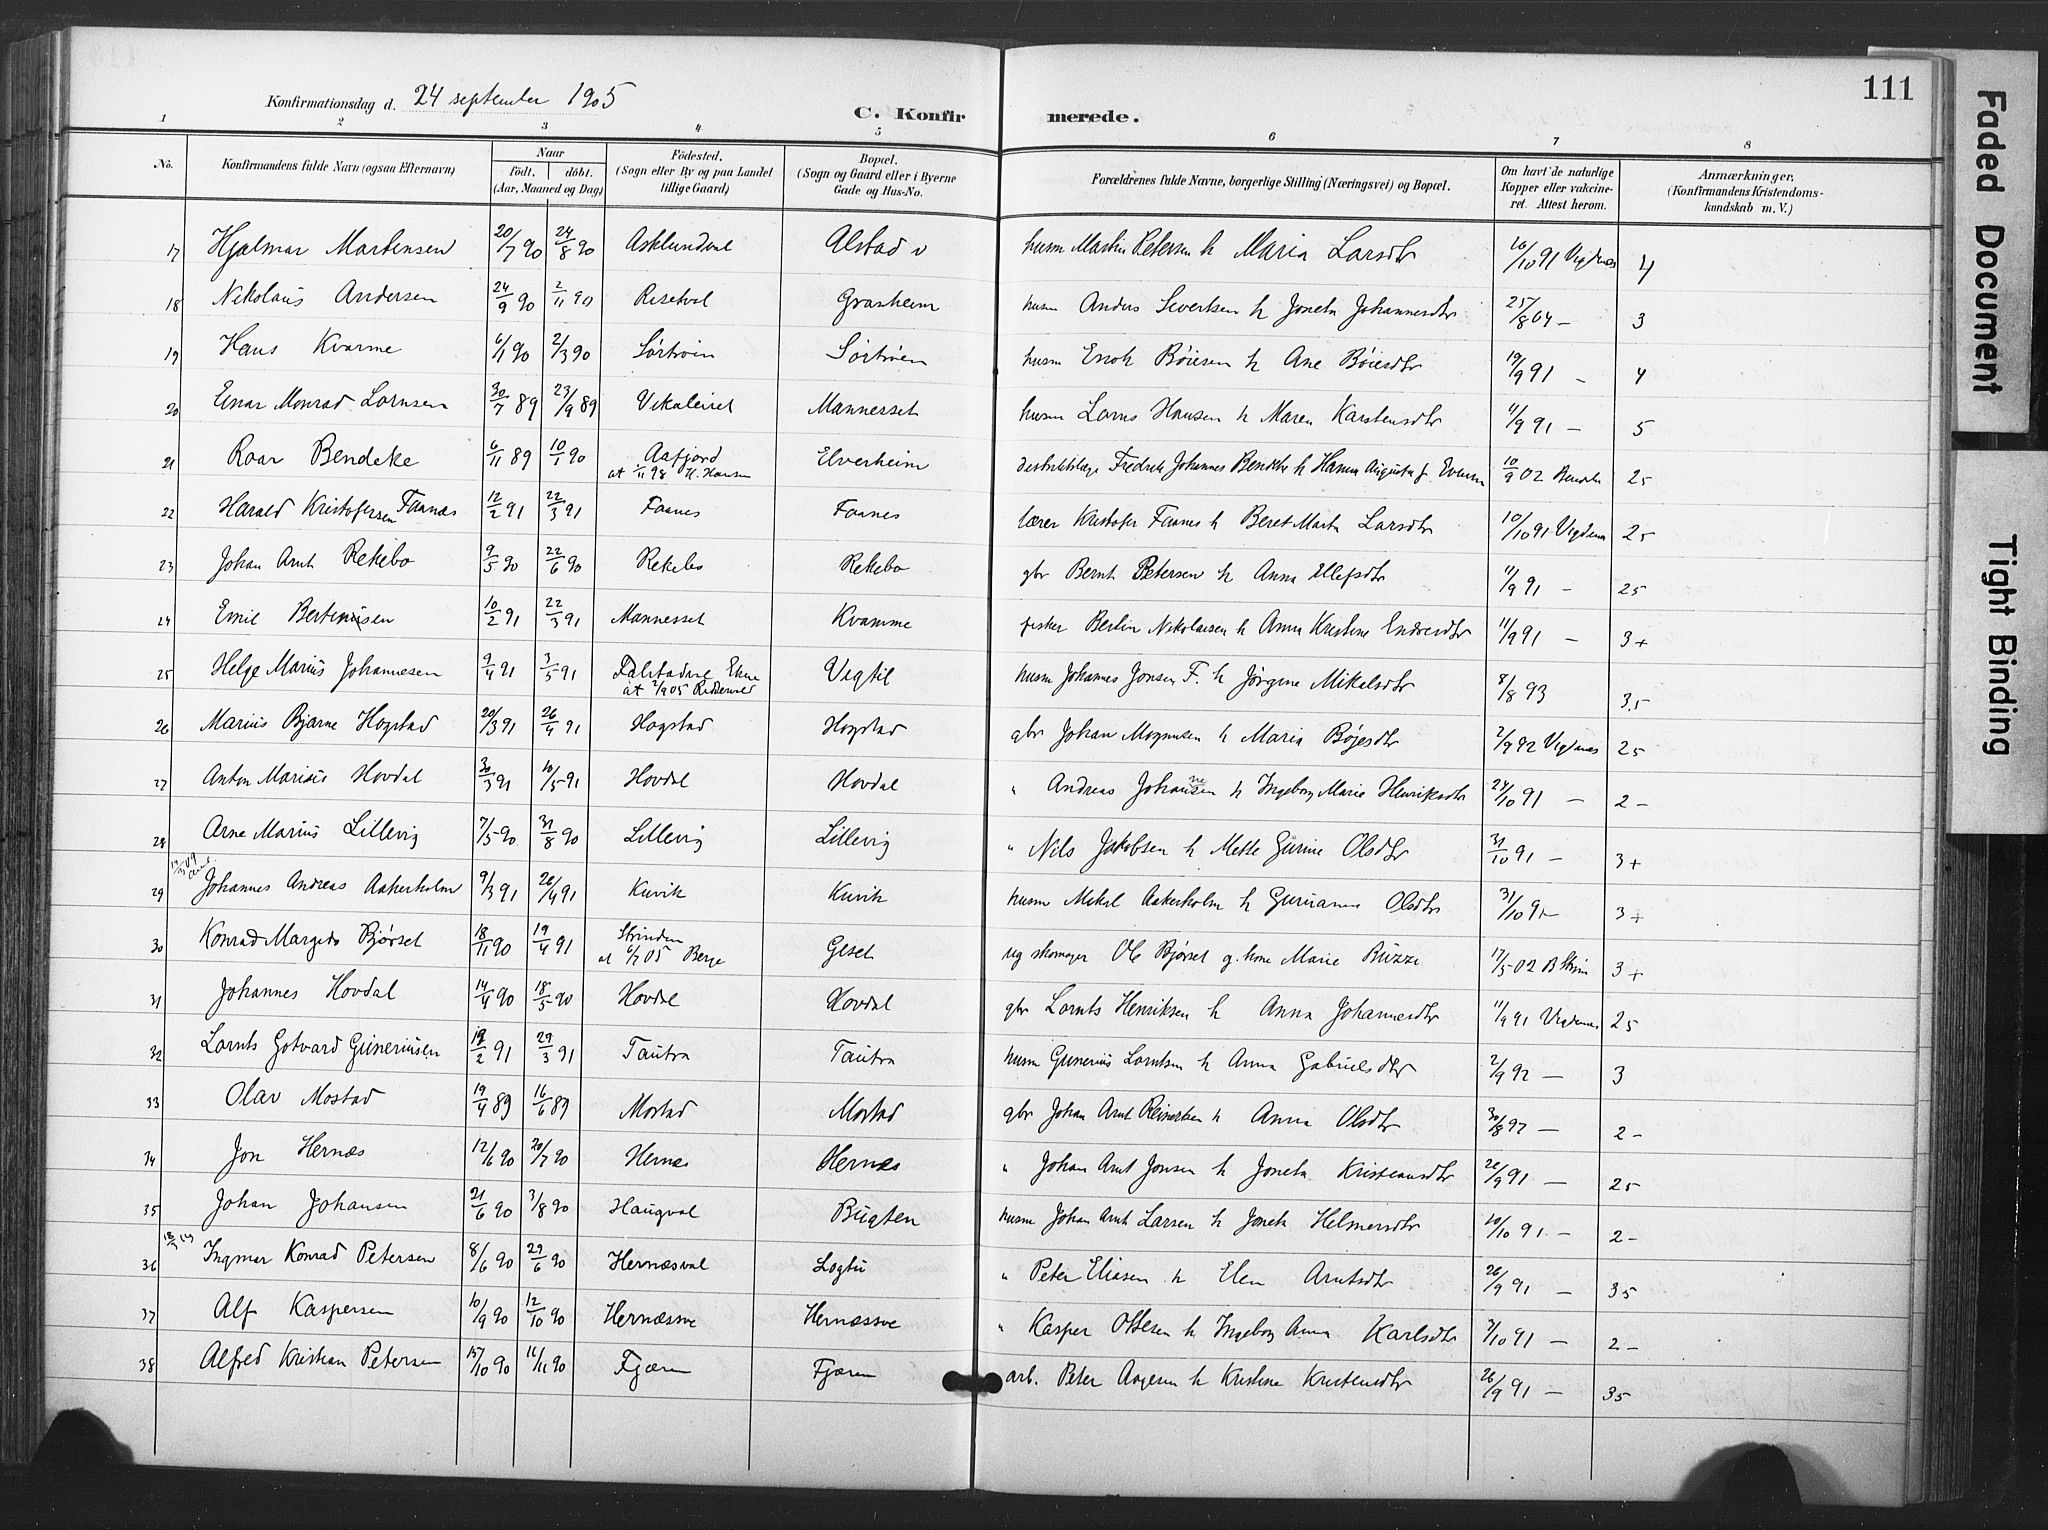 111
Konfirmationsdag d. 24 september 1905
C. Konfirmerede.
1 2 3 4 5 6 7 8
No. Konfirmandens fulde Navn (ogsaa Efternavn) Naar født. døbt. (Aar, Maaned og Dag) Fødested. (Sogn eller By og paa Landet tillige Gaard) Bopæl. (Sogn og Gaard eller i Byerne Gade og Hus-No. Forældrenes fulde Navne, borgerlige Stilling (Næringsvei) og Bopæl. Om havt de naturlige Kopper eller vakcineret. Attest herom. Anmærkninger. (Konfirmandens Kristendomskundskab m. V.)
17 Hjalmar Martensen 20/7 90 24/8 90 Alstad v husm Martin Petersen h Maria Larsdtr 16/10 91 Vigdenes 4
18 Nikolaus Andersen 24/9 90 2/11 90 Grasheim husm Anders Sivertsen h Joneta Johannesdtr 25/8 04 – 3
19 Hans Kvarme 6/1 90 2/3 90 Sørtrøen Sørtrøen husm Enok Bøiesen h Ane Bøiesdtr 19/9 91 – 4
20 Einar Monrad Lornsen 30/7 89 23/9 89 Vikaleiret Mannesset husm Lorns Hansen h Maren Karstensdtr 11/9 91 – 5
21 Roar Bendeke 6/11 89 10/1 90 Aafjord at 1/11 98 H. Hansen Elverheim destriktslæge Fredrik Johannes Bendeke h Hanna Augusta f. Evensen 10/9 02 Bendeke 25
22 Harald Kristofersen Faanæs 12/2 91 22/3 91 Faanes Faanes lærer Kristofer Faanes h Beret Marta Larsdtr 10/10 91 Vigdenes 25
23 Johan Arnt Rekebo 9/5 90 22/6 90 Rekebo Rekebo gbr Bernt Petersen h Anna Ellefsdtr 11/9 91 – 25
24 Emil Bertinusen 10/2 91 22/3 91 Mannesset Kvamme fisker Bertin Nikolaisen h Anna Kristine Endresdtr 11/9 91 – 3+
25 Helge Marius Johannesen 9/4 91 3/5 91 at 2/9 05 Vegtil husm Johannes Jonsen F. h Jørgine Mikalsdtr 8/8 93 3.5
26 Marius Bjarne Hogstad 20/3 91 26/4 91 Hogstad Hogstad gbr Johan Mogensen h Maria Bøjesdtr 2/9 92 Vigdenes 25
27 Anton Marius Hovdal 30/3 91 10/5 91 Hovdal Hovdal " Andreas Johannesen h Ingeborg Marie Henriksdtr 24/10 91 – 2–
28 Arne Marius Lillevig 7/5 90 31/8 90 Lillevig Lillevig " Nils Jakobsen h Mette Gurine Olsdtr 31/10 91 – 3+
29 Johannes Andreas Aakerholm 9/3 91 26/4 91 Kuvik Kuvik husm Mikal Aakerholm h Gurianna Olsdtr 31/10 91 – 3+
30 Konrad Margido Bjørset 18/11 90 19/4 91 Strinden at 6/7 05 Berge Geset ug skomager Ole Bjørset g. kone Marie Buzze 17/5 02 3+
31 Johannes Hovdal 14/4 90 18/5 90 Hovdal Hovdal gbr Lornts Henriksen h Anna Johannesdtr 11/9 91 Vigdenes 25
32 Lornts Gotvard Guneriussen 12/2 91 29/3 91 Tautra Tautra husm Gunerius Lorntsen h Anna Gabrielsdtr 2/9 92 – 3
33 Olav Mostad 19/4 89 16/6 89 Mostad Mostad gbr Johan Arnt Reinertsen h Anna Olsdtr 30/8 97 – 2–
34 Jon Hernæs 12/6 90 20/7 90 Hernæs Hernæs " Johan Arnt Jonsen h Joneta Kristiansdtr 26/9 91 – 25
35 Johan Johansen 21/6 90 3/8 90 Haugval Bugten husm Johan Arnt Larsen h Joneta Helmersdtr 20/10 91 – 2–
36 Ingmar Konrad Petersen 8/6 90 29/6 90 Hernæsval Logtu " Peter Eliasen h Elen Arntsdtr 26/9 91 – 35
37 Alf Kaspersen 10/9 90 12/10 90 Hernæssve Hernæssve " Kasper Ottesen h Ingeborg Anna Karlsdtr 3/10 91 – 2–
38 Alfred Kristian Petersen 15/10 90 16/11 90 Fjæren Fjæren arb. Peter Aagesen h Kristine Kristensdtr 26/9 91 – 35
Faded Document
Tight Binding